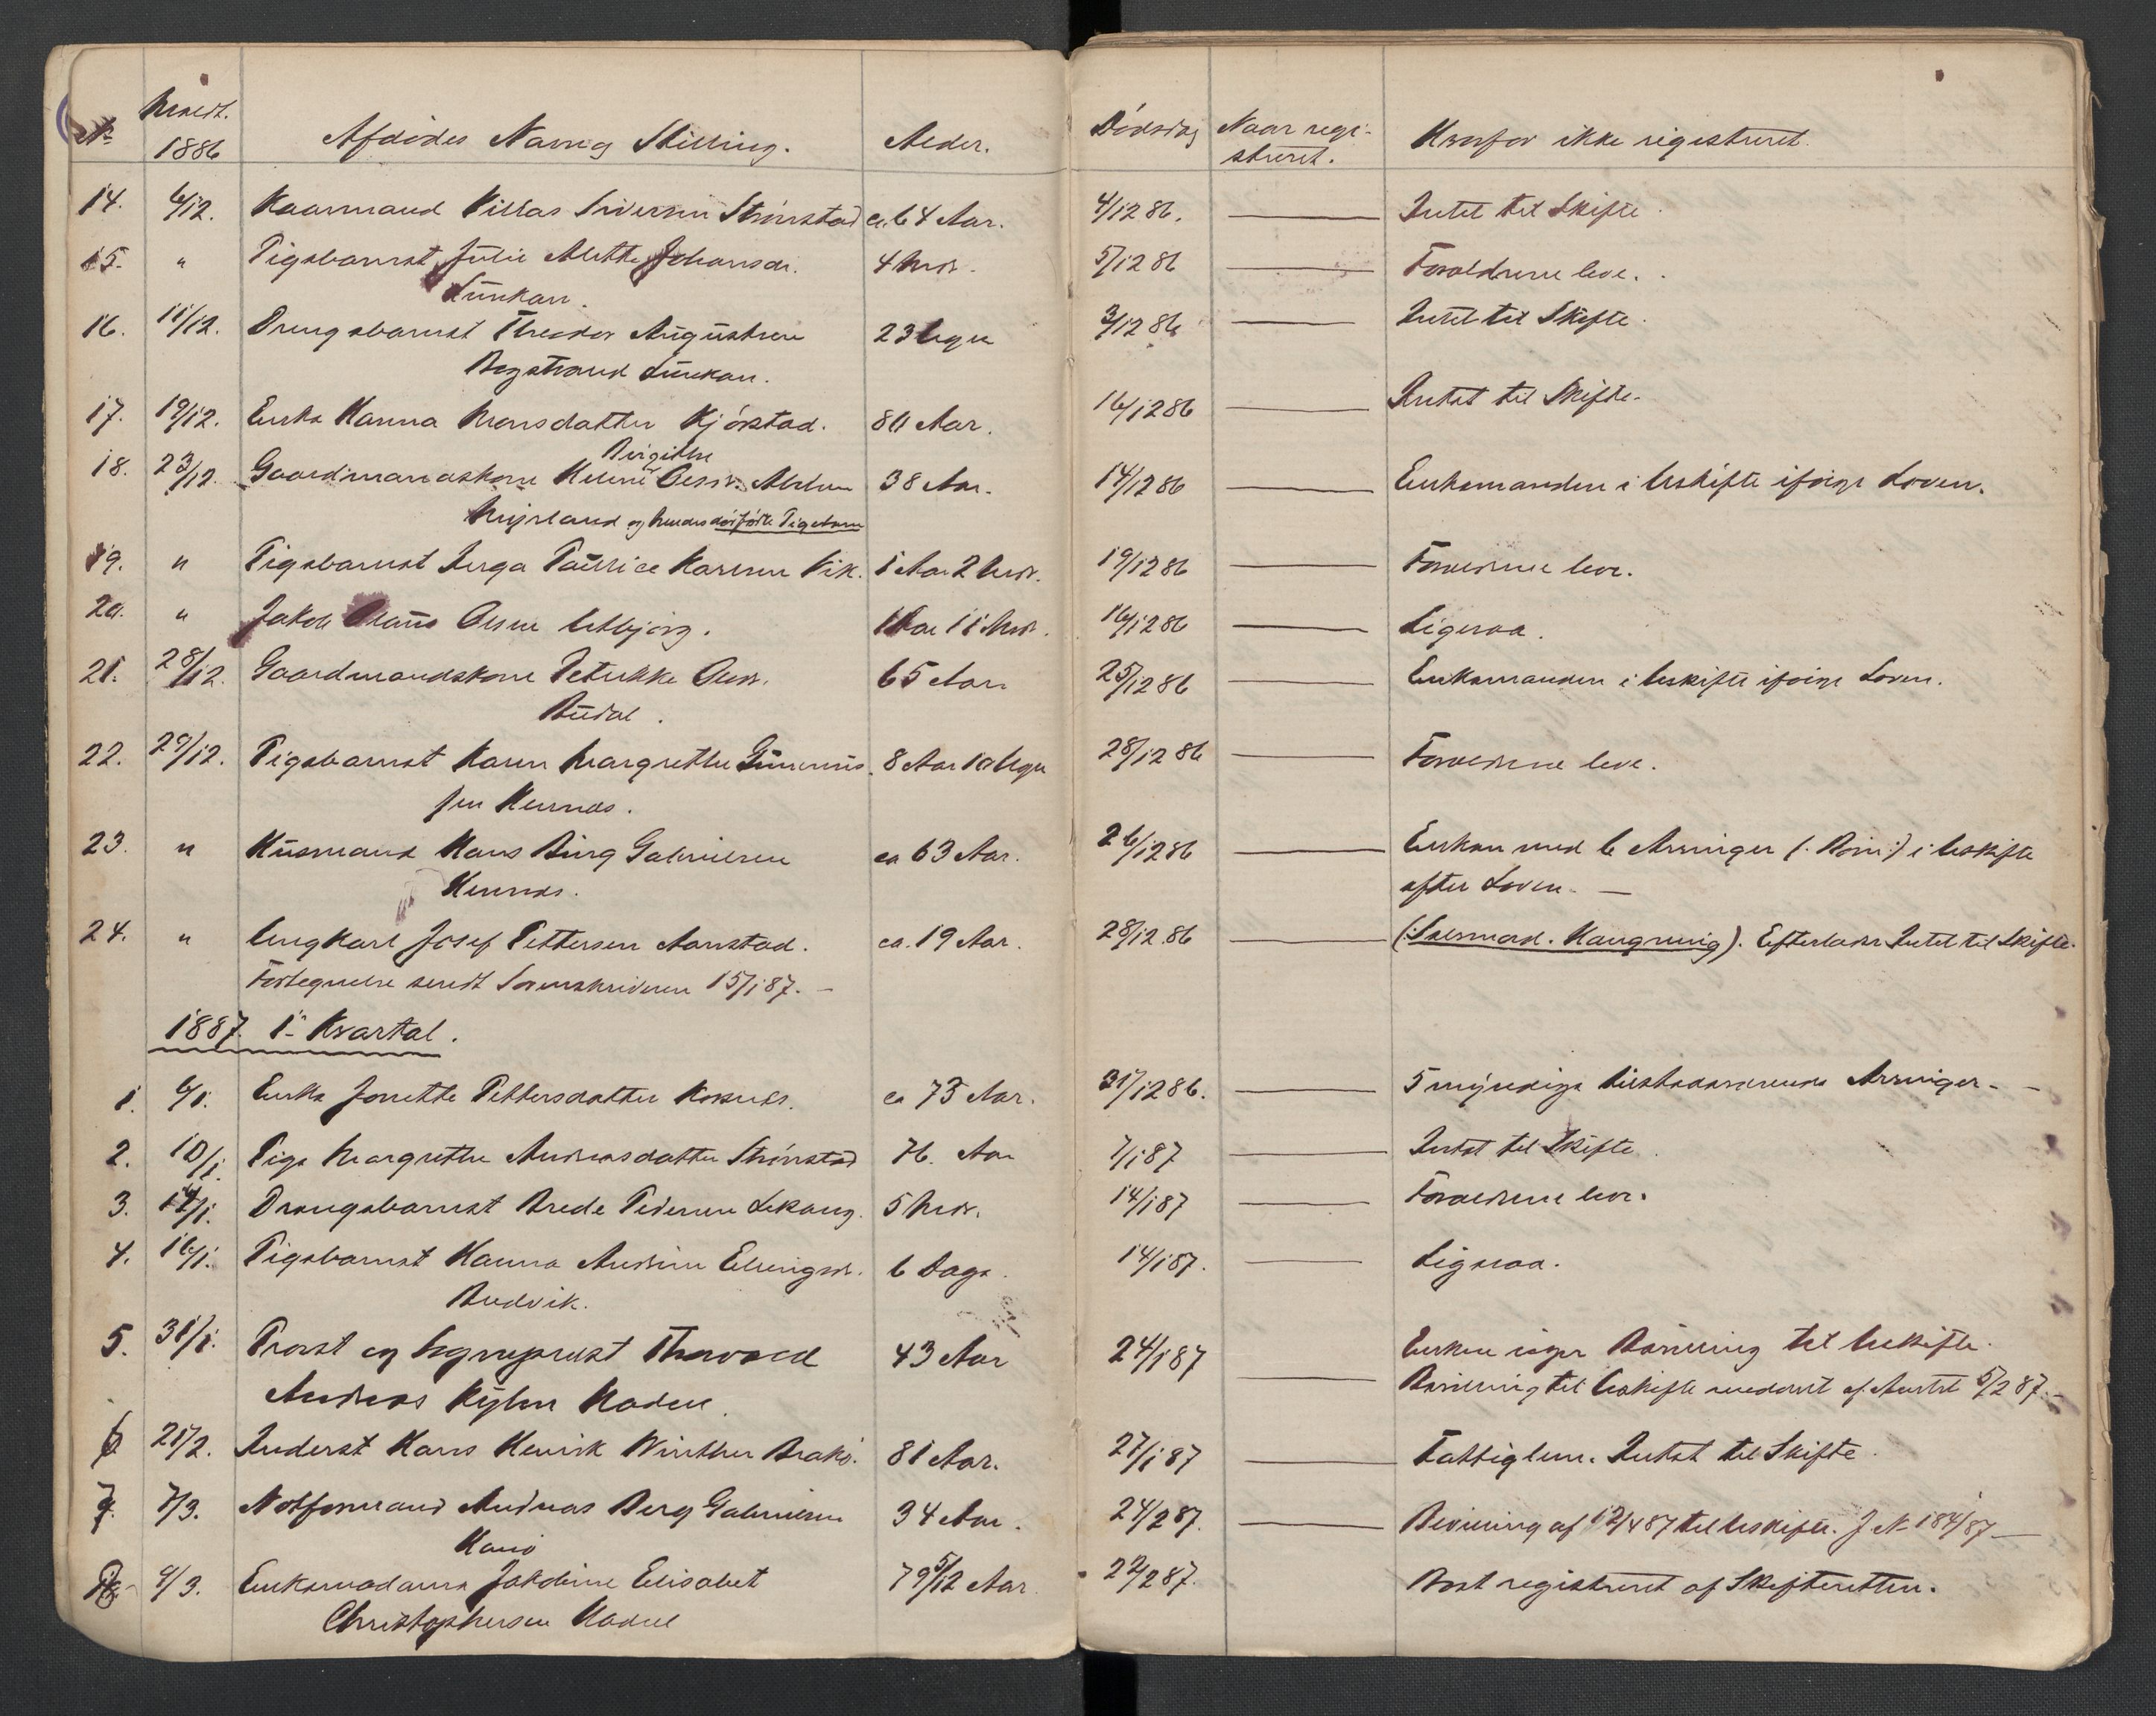 No Meldt. 1886 Afdødes Navn og Stilling. Alder. Dødsdag Naar regi-
streret. Hvorfor ikke registreret.
14. 6/12. Kaarmand Siversen Strønstad ca. 64 Aar. 4/12 86. — Intet til Skifte.
15. " Pigebarnet Julie Methe Johansdr. 4 Mdr. 5/12 86 — Forældrene leve.
16. 11/12. Drengebarnet Theodor Augustsen 23 Uger 3/12 86 — Intet til Skifte.
Bogstrand
17. 19/12. Enke Hanna Monsdatter Kjørstad. 80 Aar. 16/12 86 — Intet til Skifte.
Birgithe
18. 23/12. Gaardmandskone Helene Olsdr. 38 Aar. 14/12 86 — Enkemanden i Uskifte ifølge Loven.
Myrland og hendes dødfødte Pigebarn
19. " Pigebarnet Inga Karlsen Vik. 1 Aar 2 Mdr. 19/12 86 — Forældrene leve.
20. " Jakob Olaus Olsen Utbjørg. 1 Aar 11 Mdr. 16/12 86 — Ligesaa.
21. 28/12. Gaardmandskone Petrikke Olsdr. 65 Aar 25/12 86 — Enkemanden i Uskifte ifølge Loven.
Budal.
22. 29/12. Pigebarnet Karen Margrethe Gunnerius- 8 Aar 10 Uger 28/12 86 — Forældrene leve.
sen Hennes.
23. " Husmand Hans Berg Gabrielsen ca 63 Aar. 26/12 86 — Enken med 6 Arvinger (: Børn :) i Uskifte
Hennes. efter Loven. —
24. " Ungkarl Josef Pettersen Aanstad. ca. 19 Aar. 28/12 86 — (: Selvmord. Hængning). Efterlader Intet til Skifte.
Fortegnelse sendt Sorenskriveren 15/1 87. —
1887. 1ste Kvartal.
1. 6/1. Enke Jonette Pettersdatter ca 73 Aar. 31/12 86. — 5 myndige tilstedeværende Arvinger. —
2. 10/1. Pige Margrethe Andreasdatter Strønstad 76. Aar 7/1 87 — Intet til Skifte.
3. 14/1. Drengebarnet Brede Pedersen Lekang. 5 Mdr. 14/1 87 — Forældrene leve.
4. 16/1. Pigebarnet Hanna Andrine Ellingsdr. 6 Dage. 14/1 87. — Ligesaa.
Budvik.
5. 31/1. Provst og Sogneprest Thorvald 43 Aar 24/1 87 Enken søger Bevilling til Uskifte.
Andreas Hadsel. — Bevilling til Uskifte meddelt af Amtet 5/2 87. —
6. 21/2. Inderst Hans Henrik Winther Brakø. 81 Aar. 27/1 87 — Fattiglem. Intet til Skifte.
7. 7/3. Notformand Andreas Berg Gabrielsen 34 Aar. 24/2 87. — Bevilling af 12/4 87 til Uskifte. J N 184/87 —
Hanø
8. 9/3. Enkemadame Jakobine Elisabet 79 5/12 Aar. 22/2 87. Boet registreret af Skifteretten.
Christophersen Hadsel